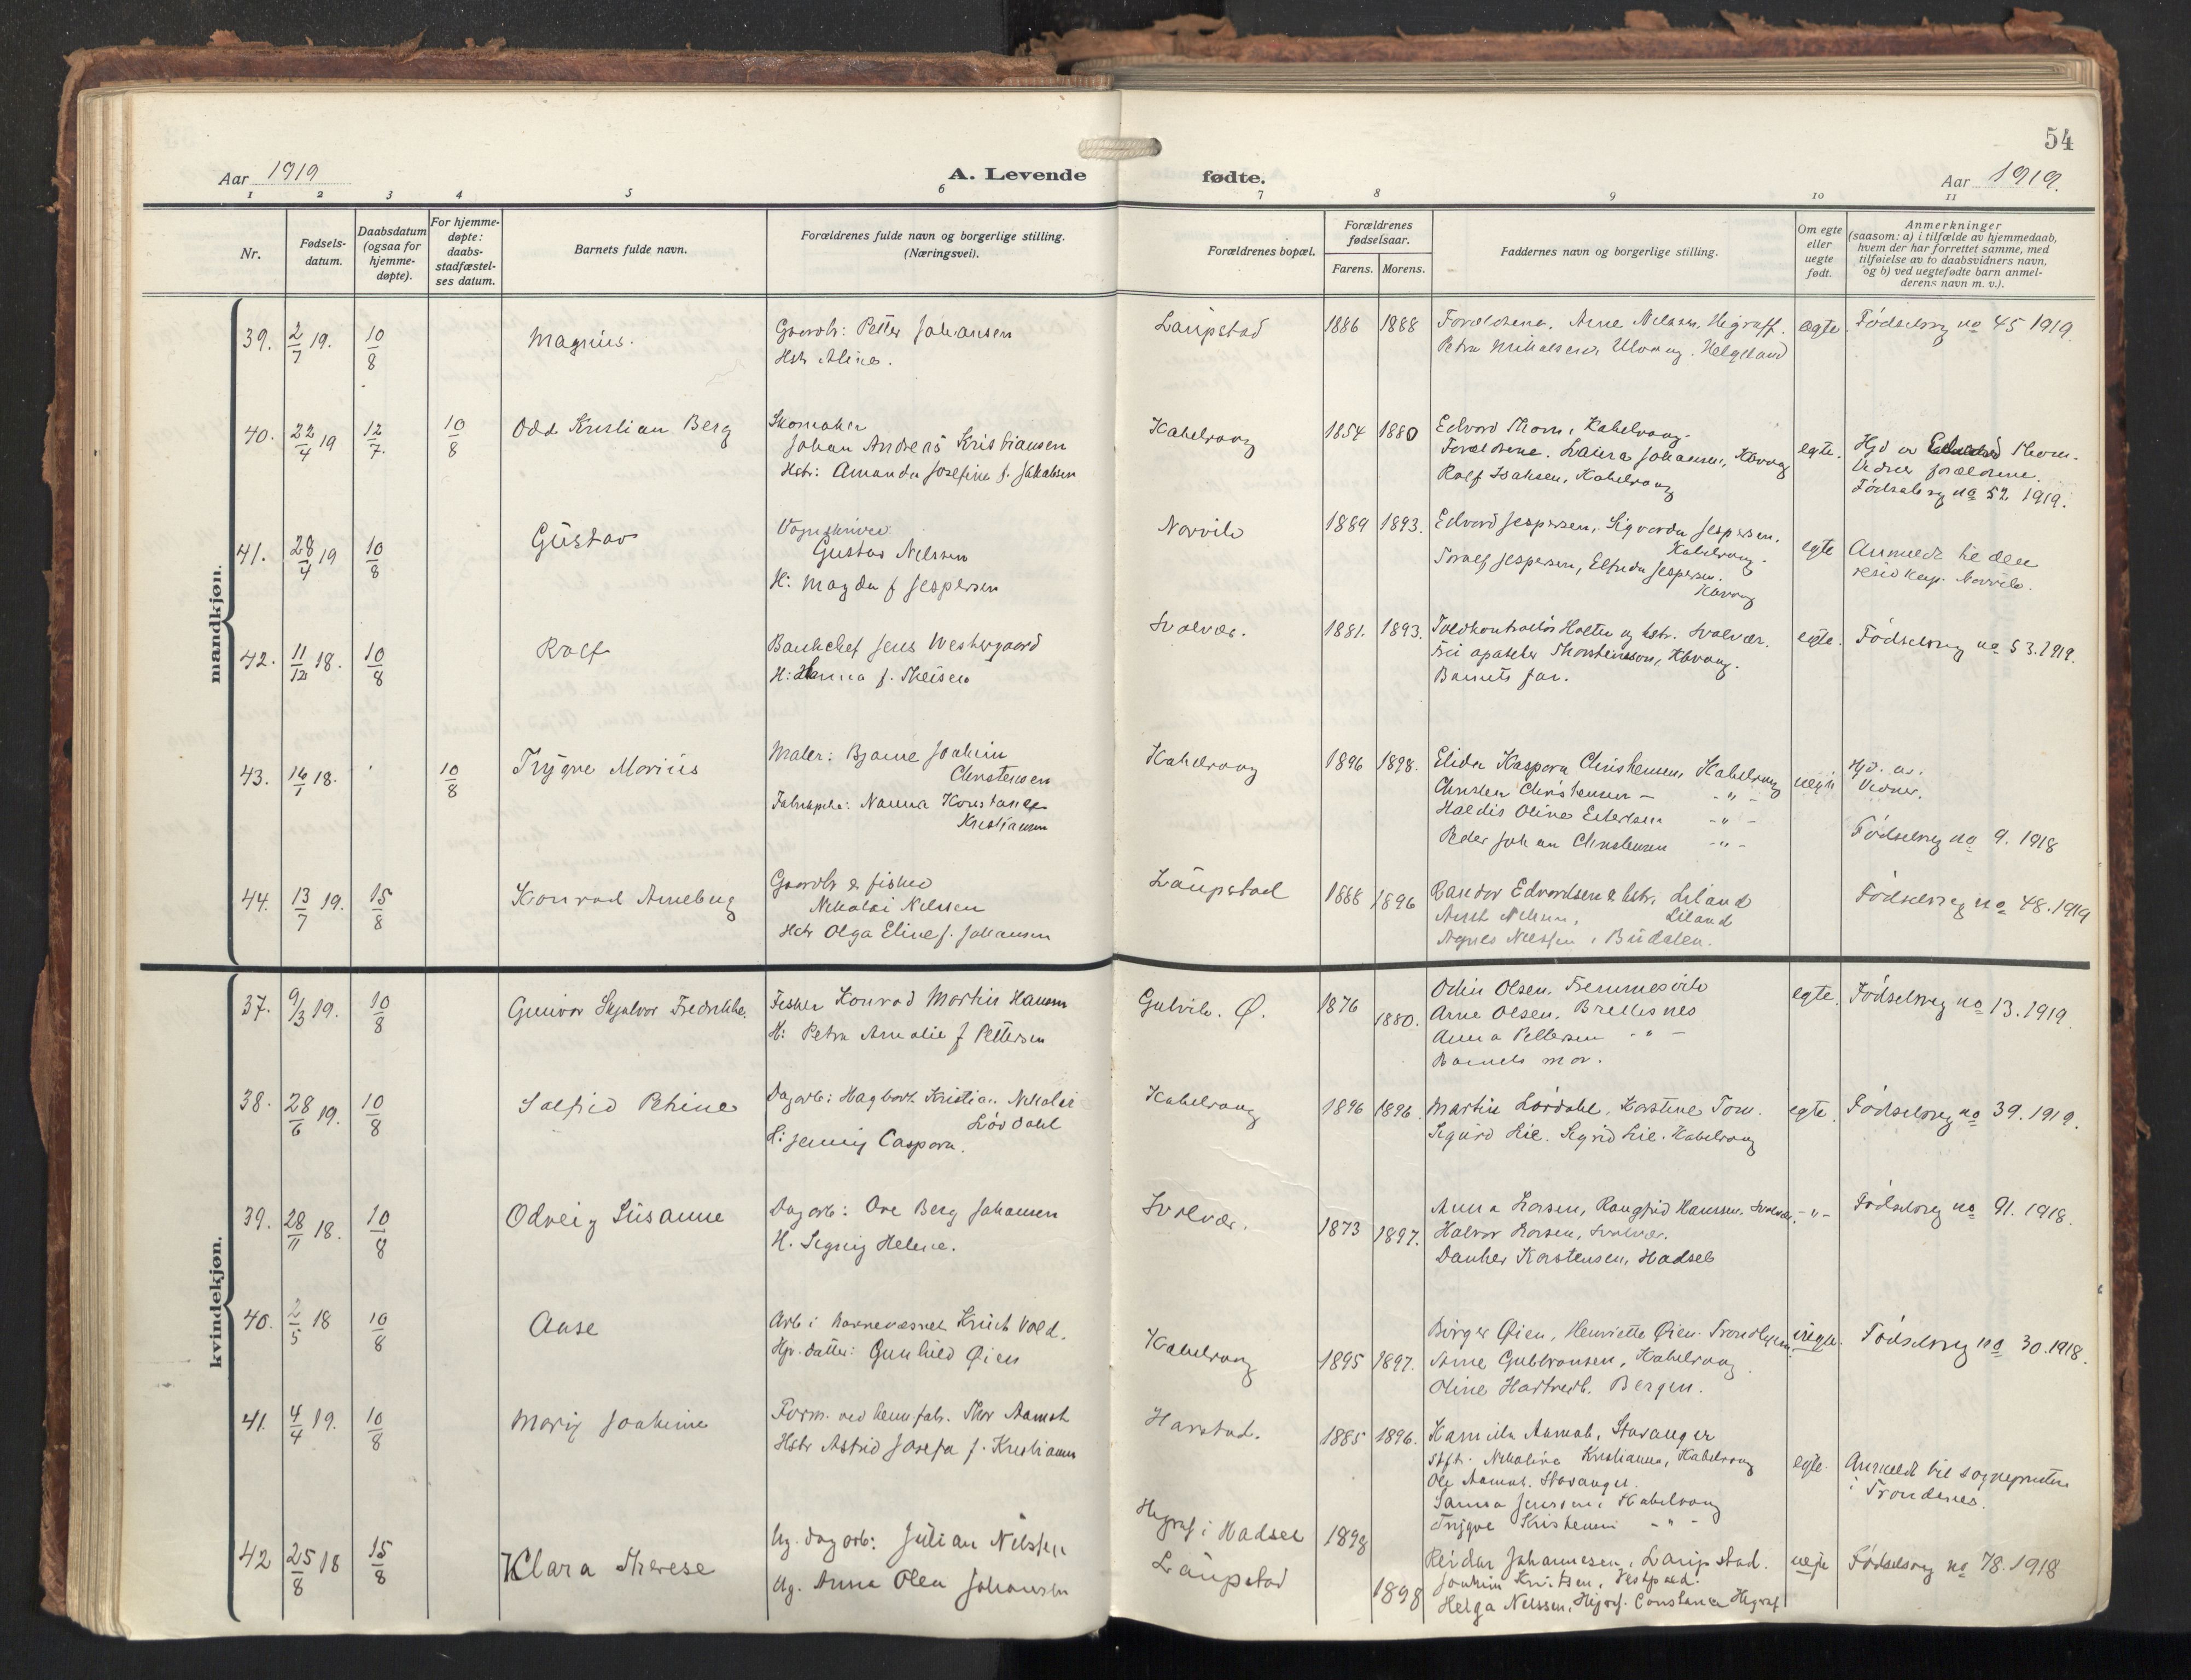 54
Aar 1919
A. Levende
fødte.
Aar 1919.
1 2 3 4 5 6 7 8 9 10 11
Nr.
Fødsels-
datum.
Daabsdatum
(ogsaa for
hjemme-
døpte).
For hjemme-
døpte:
daabs-
stadfæstel-
ses datum.
Barnets fulde navn.
Forældrenes fulde navn og borgerlige stilling.
(Næringsvei).
Forældrenes bopæl.
Forældrenes
fødselsaar.
Farens. Morens.
Faddernes navn og borgerlige stilling.
Om egte
eller
uegte
født.
Anmerkninger
(saasom: a) i tilfælde av hjemmedaab,
hvem der har forrettet samme, med
tilføielse av to daabsvidners navn,
og b) ved uegtefødte barn anmel-
derens navn m. v.).
mandkjøn.
39. 2/7 19. 10/8 Magnus.
Gaardb: Petter Johansen
Hstr Aline.
Laupstad 1886 1888
Forældrene, Arne Nilssen, Higraff.
Helgeland
egte. Fødselsreg no 45 1919.
40. 22/4 19 12/7. 10/8 Odd Kristian Berg
Skomaker
Johan Andreas Kristiansen
Hstr: Amanda Josefine f. Jakobsen
Kabelvaag 1854 1880
Edvard Thom, Kabelvaag.
Forældrene. Laura Johansen, Kbvaag
Rolf Isaksen, Kabelvaag
egte. Hjd av Thom.
Vidner forældrene.
Fødselsreg no 52 1919.
41. 28/4 19 10/8 Gustav
Gustav Nilssen
H: Magda f Jespersen
Narvik 1889 1893.
Edvard Jespersen, Sigvarda Jespersen.
Kabelvaag.
Toralf Jespersen, Elfrida Jespersen.
Kbvaag
egte Anmeldt til den
resid kap. Narvik.
42. 11/12 18. 10/8 Rolf
Bankchef Jens Westergaard
H: Hanna f. Theisen
Svolvær. 1881. 1893.
Toldkontrollør Holte og hstr. Svolvær.
Fru apoteker Thorsteinson, Kbvaag.
Barnets far.
egte. Fødselsreg no 53.1919.
43. 16/1 18. 10/8 Trygve Marius
Maler: Bjarne Joakim
Christensen
Nanna Konstance
Kristiansen
Kabelvaag 1896 1898.
Elida Kaspara Christensen, Kabelvaag
Christen Christensen - -"-
Haldis Oline -"-
Peder Johan Christensen -"-
uegte Hjd. av.
Vidner.
Fødselsreg no 9. 1918
44. 13/7 19. 15/8 Konrad Arneberg
Gaardb & fisker
Nikolai Nilssen
Hstr Olga Eline f. Johansen
Laupstad 1888 1896
Edvardsen & hstr, Liland
Liland
Agnes Nilssen, Budalen.
Fødselsreg no 48.1919
kvindekjøn.
37. 9/3 19. 10/8 Gunvor Skjalvor Fredrikke.
Fisker Konrad Martin Hansen
H: Petra Amalie f Pettersen
Gulvik. Ø. 1876 1880.
Odin Olsen.
Arne Olsen, Brettesnes
Anna Pettersen -"-
Barnets mor.
egte. Fødselsreg no 13.1919.
38. 28/6 19. 10/8 Solfrid Petrine
Dagarb: Hagbart Kristian Nikolai
Løvdahl
H: Jenny Caspara.
Kabelvaag 1896 1896.
Martin Løvdahl, Torstine Tom.
Sigurd Lie. Sigrid Lie. Kabelvaag
egte. Fødselsreg no 39.1919.
39. 28/11 18. 10/8 Odveig Susanne
Dagarb: Ove Berg Johansen
H. Signy Helene.
Svolvær. 1873 1897.
Anna Larsen, Rangfrid Hanssen, Svolvær.
Halvor Larsen, Svolvær.
Danker Karstensen, Hadsel
-"- Fødselsreg no 91. 1918.
40. 2/5 18 10/8 Aase
Arb i Havnevæsnet Knut Vold.
Hjv. datter: Gunhild Øien
Kabelvaag 1895 1897.
Birger Øien, Henriette Øien. Trondhjem.
Arne Gulbransen, Kabelvaag.
Oline Hartvedt. Bergen.
uegte. Fødselsreg no 30.1918.
41. 4/4 19. 10/8 Mary Joakime
Form. ved hermfab. Thor Aamot
Hstr Astrid Josefa f. Kristiansen
Harstad. 1885 1896.
Kamilla Aamot, Stavanger
Nikoline Kristiansen, Kabelvaag
Ole Aamot. Stavanger.
Sanna Jenssen, Kabelvaag
Trygve Kristensen -"-
egte. Anmeldt til sogneprsten
i Trondenes.
42 25/8 18 15/8 Klara Therese
Ug. dagarb: Julian Nilssen
Ug. Anna Olea Johansen
Higraf i Hadsel 1898
Laupstad 1898
Reidar Johannesen, Laupstad.
Joakim Knutsen, Vestpold.
Helga Nilssen, Higraf. Constance Higraf
uegte Fødselsreg no 78.1918